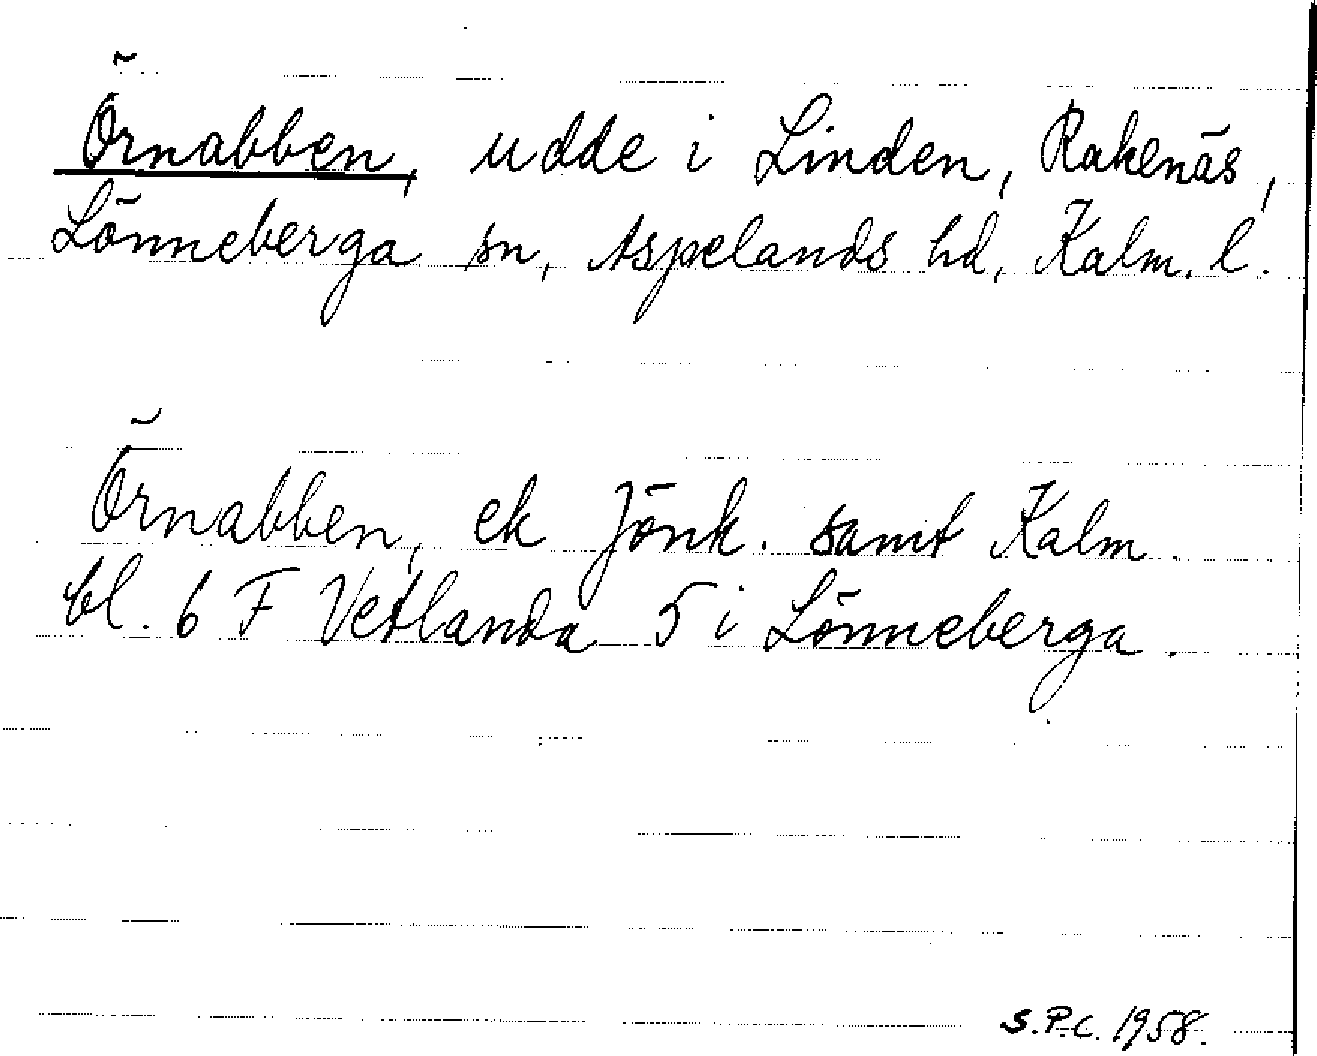 Örnabben, udde i Linden, Rakenäs,
Lönneberga sn, Aspelands hd, Kalm. l.
Örnabben, ek Jönk. samt Kalm.
bl. 6 F Vetlanda 5 i Lönneberga.
S.P.C. 1958.